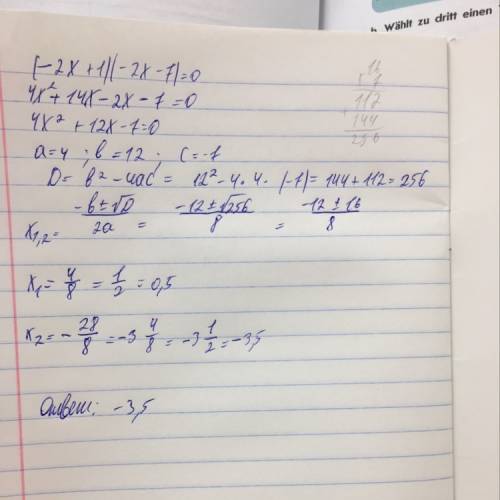 b. Wählt zu dritt einen
(-2x+1)(-2x-7)=0
4x²+14x-2x-7=0
4x²+12x-7=0
a=4 ; b=12 ; c=-7
D= b²-4ac = 12²-4·4·(-7)=144+112=256
x₁,₂= -b±√D / 2a = -12±√256 / 8 = -12±16 / 8
x₁= 4/8 = 1/2 = 0,5
x₂= -28/8 = -3 4/8 = -3 1/2 = -3,5
Ответ: -3,5
16
7
112
144
256